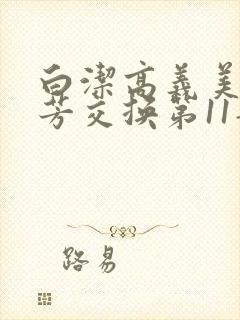 白潔高義美
芳交换第11
路易